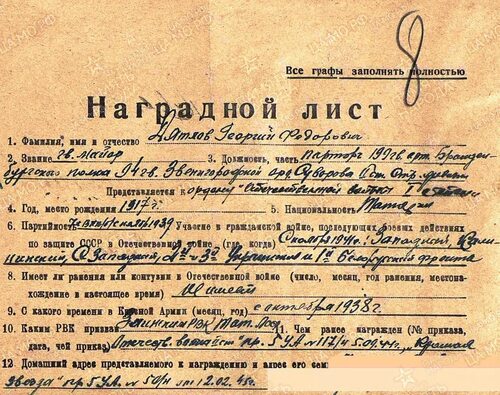 8
Все графы заполнять полностью
Наградной лист
1. Фамилия, имя и отчество Дятлов Георгий Федорович
2. Звание гв. майор 3. Должность, часть парторг 199 гв. арт. Бранден-
бургского полка 94 гв. Звенигородской орд. Суворова 2 ст.
Представляется к ордену "Отечественной войны
4. Год, место рождения 1917 г. 5. Национальность Татарин
6. Партийность 1939 Участие в гражданской войне, последующих боевых действиях
по защите СССР в Отечественной войне (где, когда) С ноября 1941 г. Западной,
2 и 3 Украинский и 1 Белорусский фронта
8. Имеет ли ранения или контузии в Отечественной войне (число, месяц, год ранения, местона-
хождение в настоящее время) Не имеет
9. С какого времени в Красной Армии (месяц, год) с октября 1938 г.
10. Каким РВК призван Заинский РВК Тат. 11. Чем ранее награжден (№ приказа,
дата, чей приказ) Отечеств. войны пр. 5 УА № 117/н 5.09.44 г., Красная
12. Домашний адрес представляемого к награждению и адрес его сем
звезда" пр. 5 УА № 50/н от 12.02.45 г.